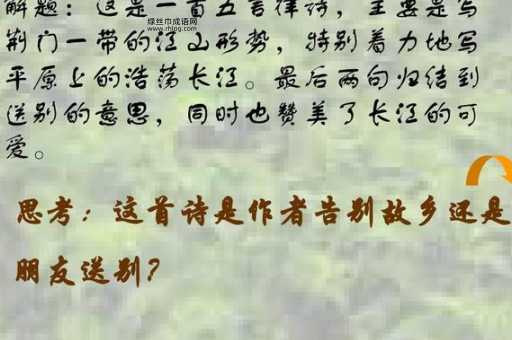 解题：这是一首五言律诗，主要是写
绿丝巾成语网
www.rhlog.com
荆门一带的江山形势，特别着力地写
平原上的浩荡长江。最后两句归结到
送别的意思，同时也赞美了长江的可
爱。
思考：这首诗是作者告别故乡还是
朋友送别？